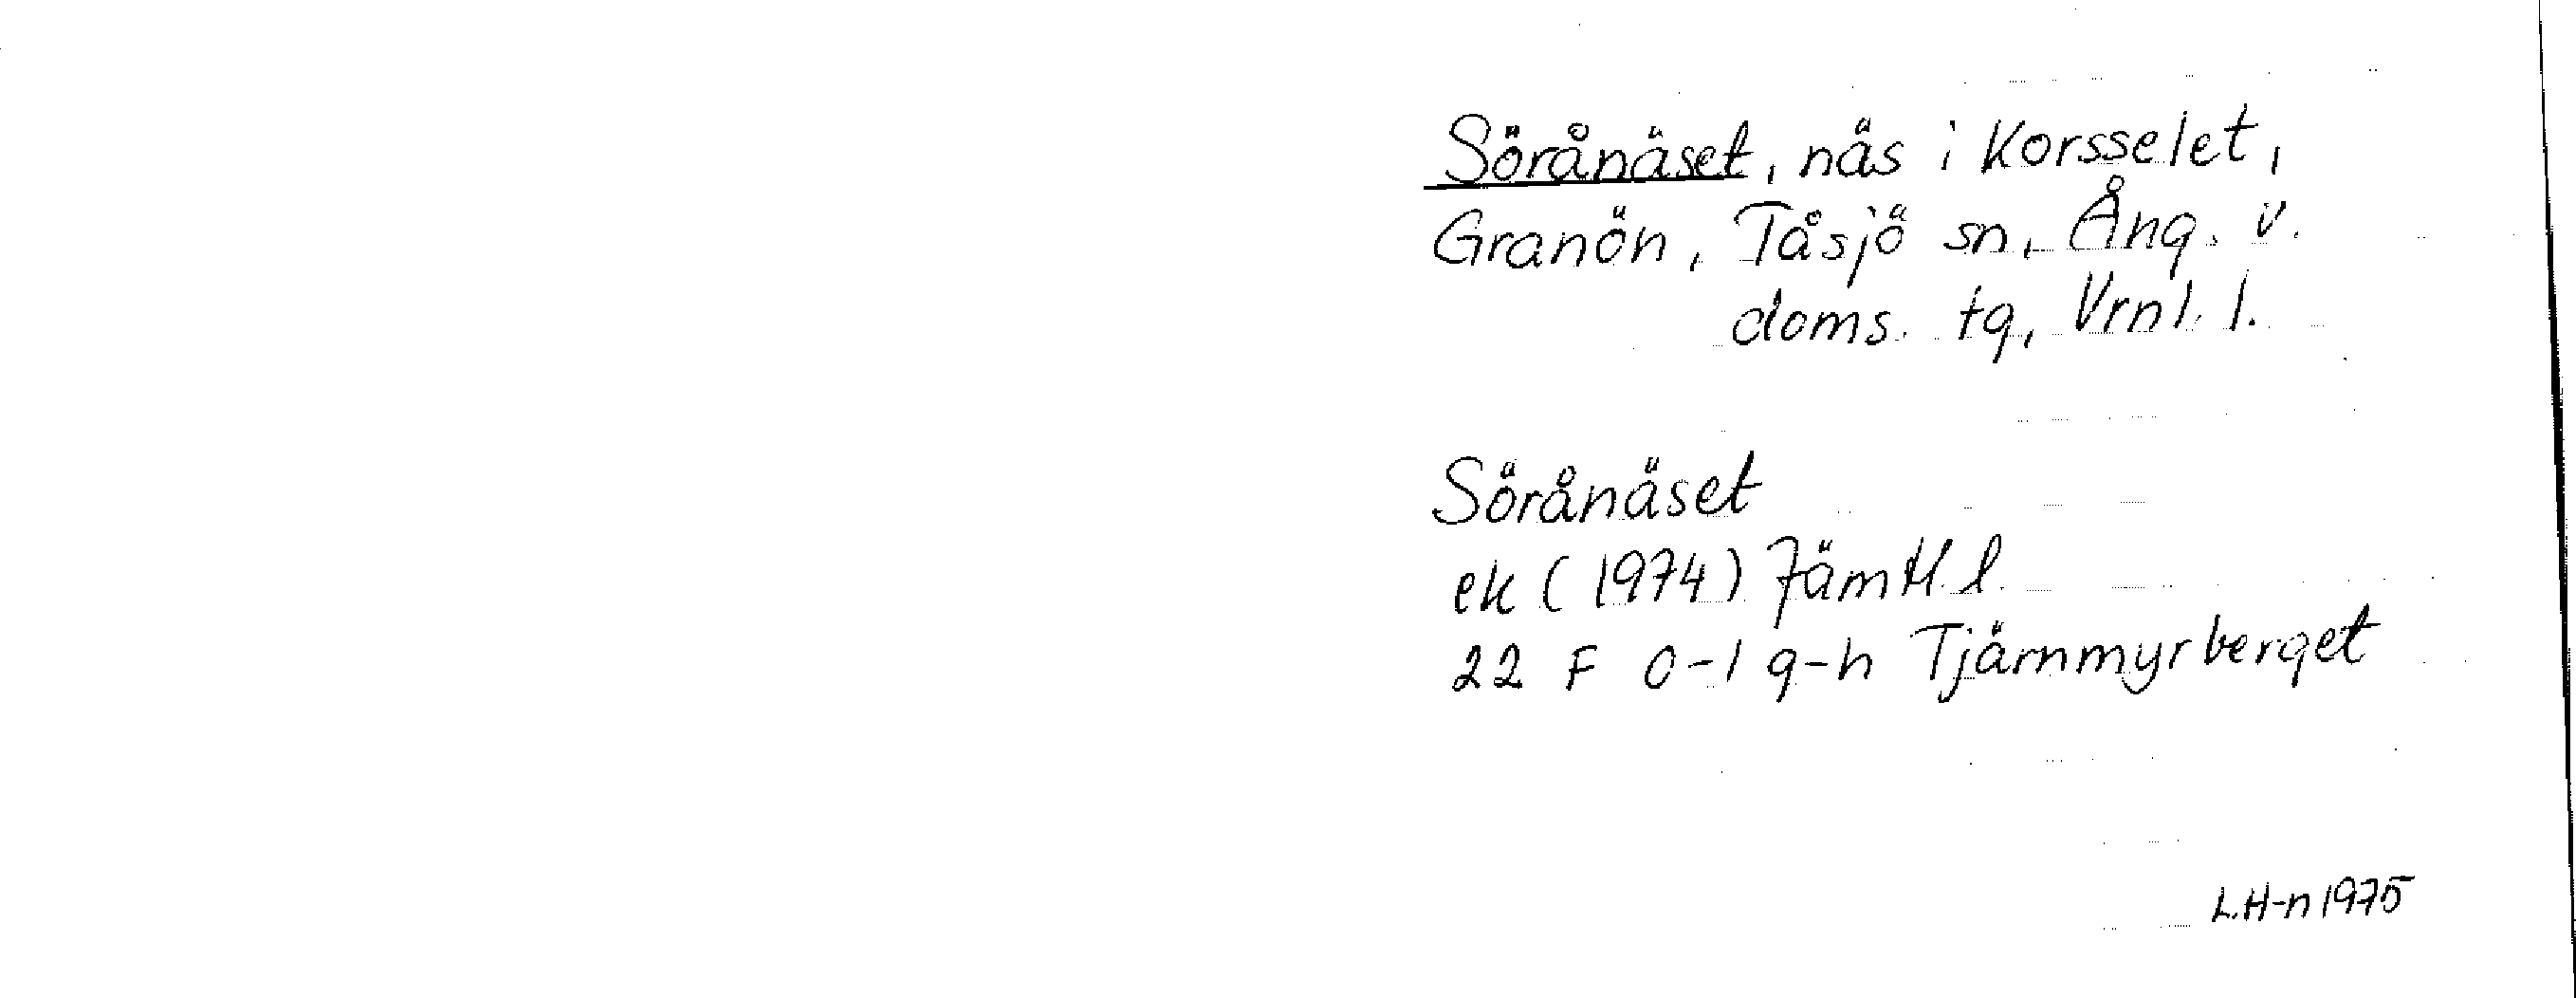 Sörånäset, näs i Korsselet,
Granön, Tåsjö sn, Ång. v.
doms. tg, Vrnl. l.
Sörånäset
ek (1974) Jämtl. l.
22 F 0-1 g-h Tjärnmyrberget
L.H-n 1975